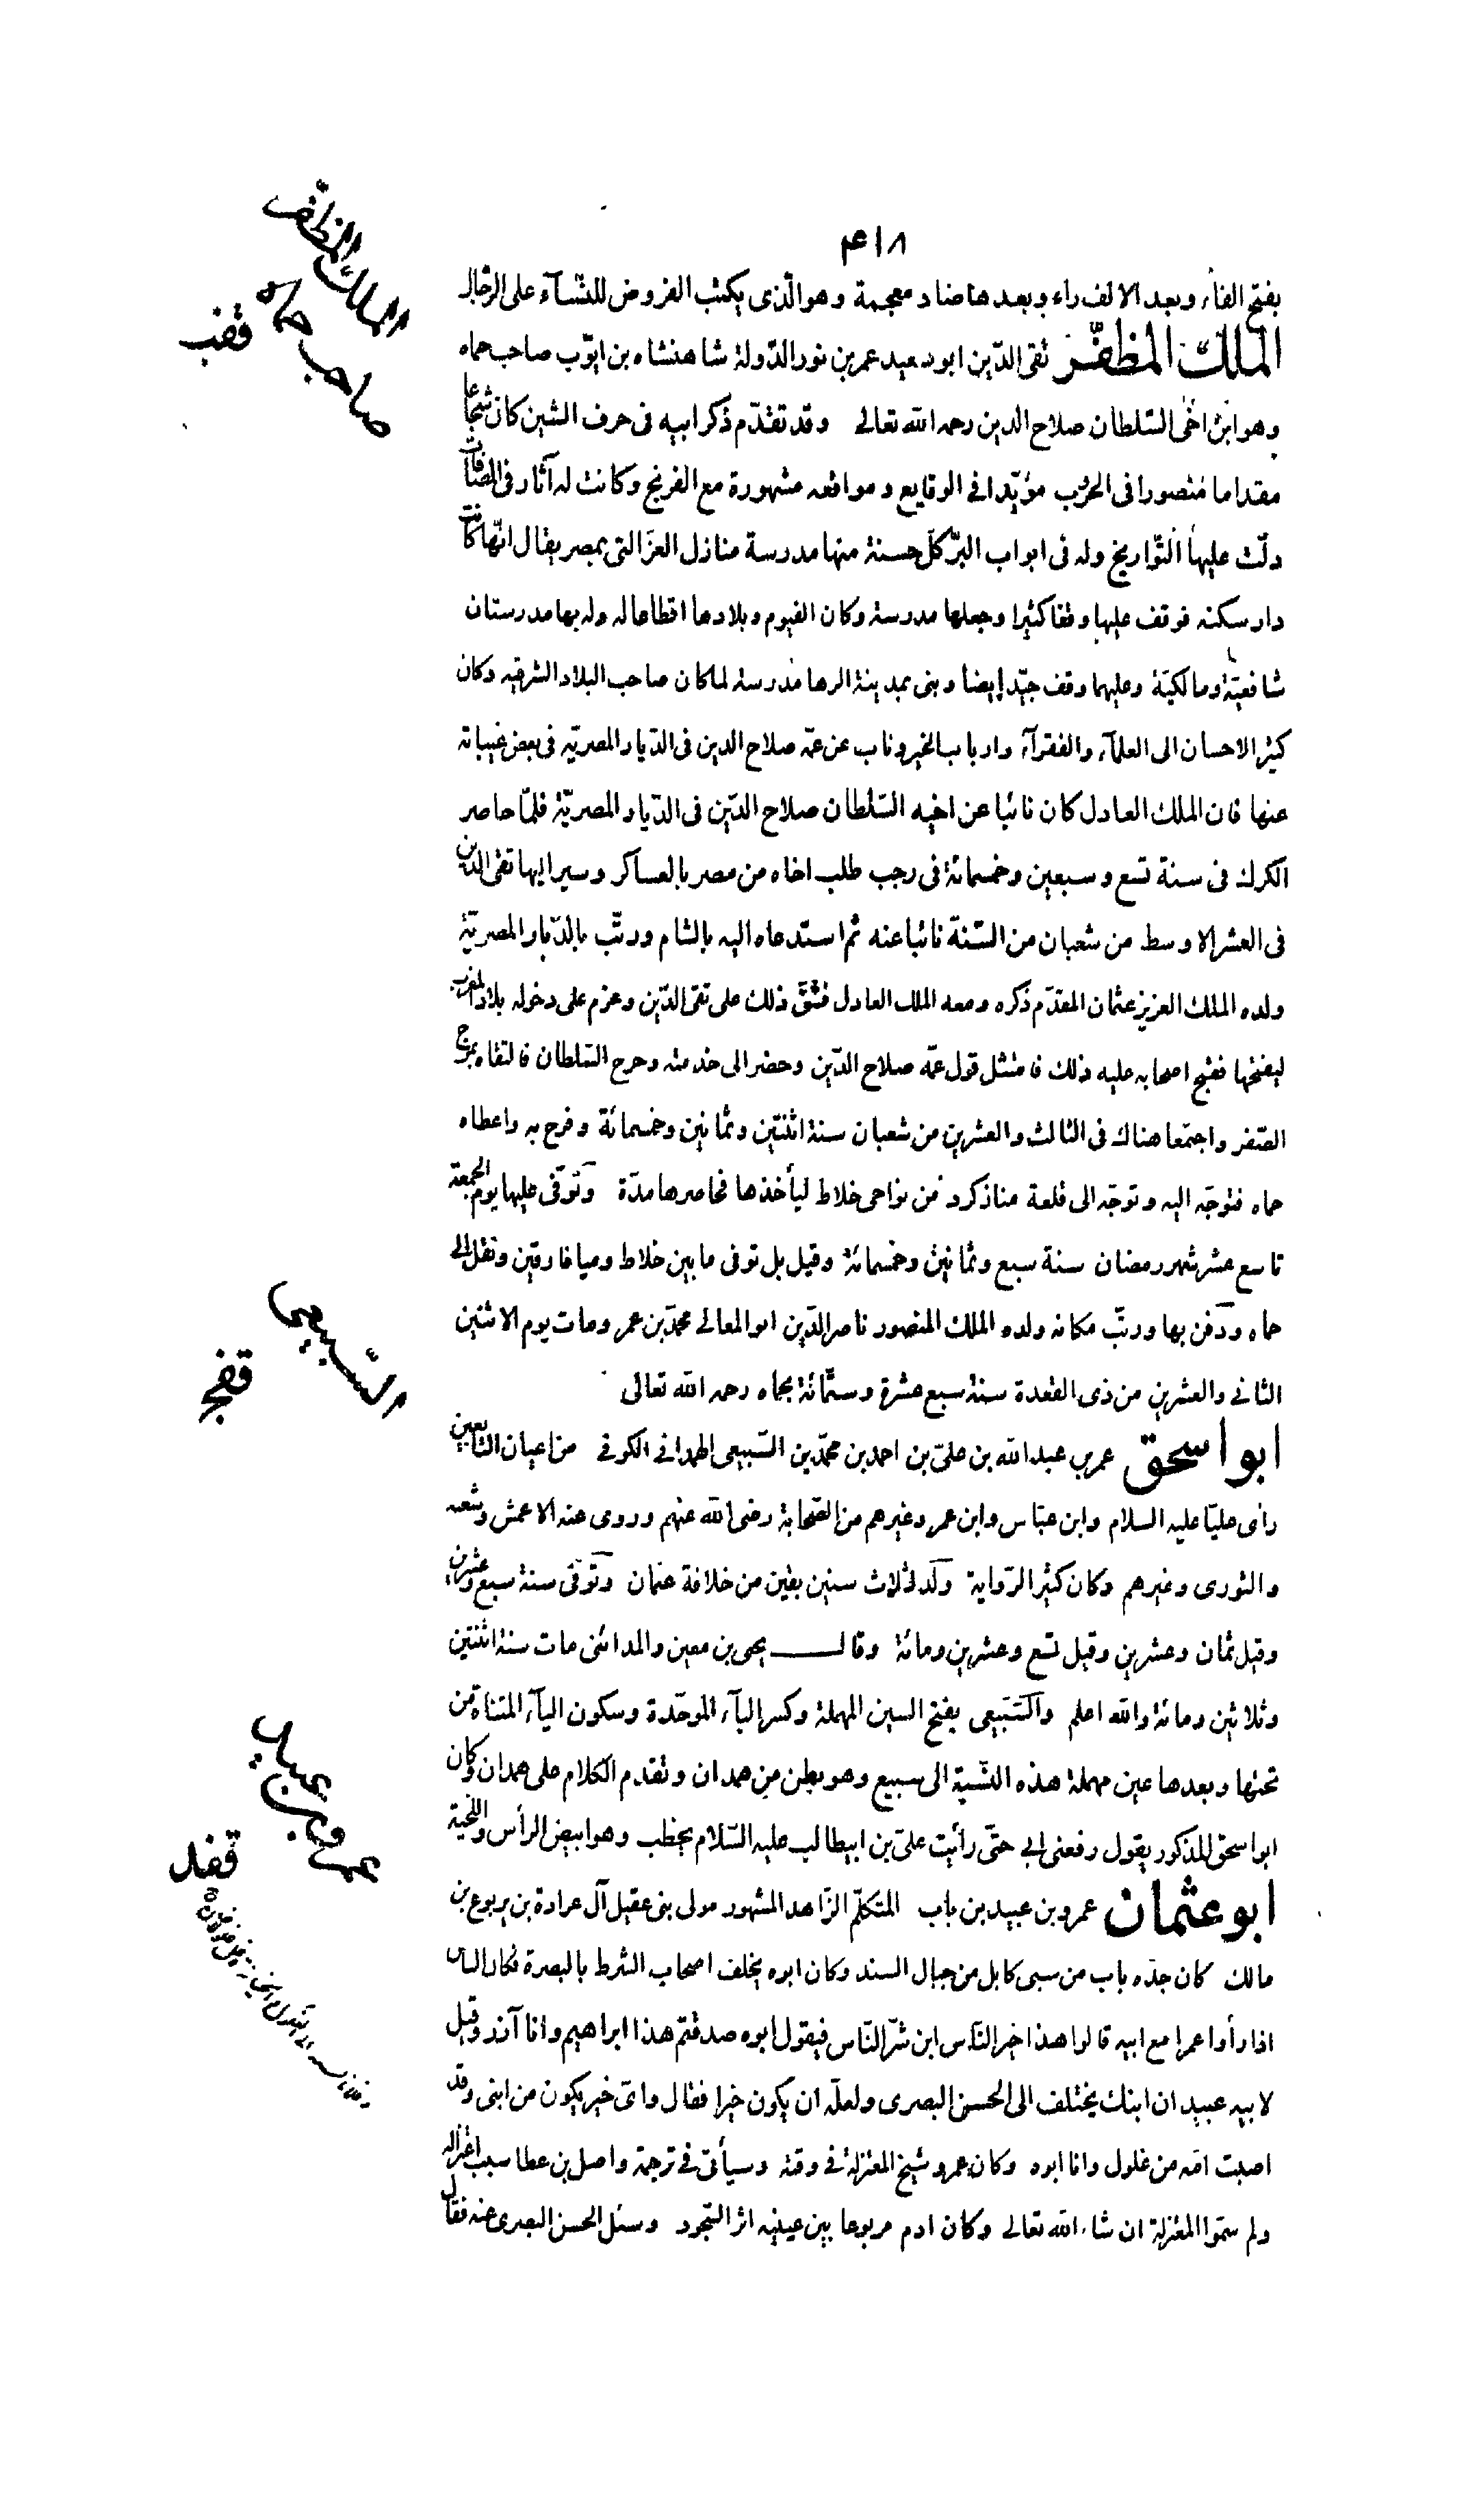 ۴۱۸
بفتح الفاء وبعد الالف راء وبعدها ضاد معجمة وهو الّذى يكتب الفروض للنّسآء على الرّجال
الملك المظفّر تقى الدّين ابو سعيد عمر بن نور الدّولة شاهنشاه بن ايوّب صاحب حماه
وهو ابن اخى السّلطان صلاح الدين رحمه الله تعالى وقد تقدّم ذكر ابيه فى حرف الشين كان شجاعا
مقداما منصورا فى الحرب مؤيّدا فى الوقايع ومواقعه مشهورة مع الفرنج وكانت له آثار فى المصافات
دلّت عليها التّواريخ وله فى ابواب البرّ كلّ حسنة منها مدرسة منازل العزّ التى بمصر يقال انّها كانت
دار سكنه فوقف عليها وقفا كثيرا وجعلها مدرسة وكان الفيوم وبلادها اقطاعا له وله بها مدرستان
شافعيّة ومالكيّة وعليهما وقف جيّد ايضا وبنى بمدينة الرها مدرسة لما كان صاحب البلاد الشرقيه وكان
كثير الاحسان الى العلمآء والفقرآء وارباب الخير وناب عن عمّه صلاح الدين فى الدّيار المصريّه فى بعض غيباته
عنها فان الملك العادل كان نائبا عن اخيه السّلطان صلاح الدّين فى الدّيار المصريّة فلمّا حاصر
الكرك فى سنة تسع وسبعين وخمسمائة فى رجب طلب اخاه من مصر بالعساكر وسير اليها تقى الدين
فى العشر الاوسط من شعبان من السّنة نائبا عنه ثم استدعاه اليه بالشام ورتّب بالدّيار المصريّة
ولده الملك العزيز عثمان المقدّم ذكره ومعه الملك العادل فشقّ ذلك على تقى الدّين وعزم على دخوله بلاد المغرب
ليفتحها فقبح اصحابه عليه ذلك فامتثل قول عمّه صلاح الدّين وحضر الى خدمته وخرج السّلطان فالتقاه بمرج
الصّفر واجتمعا هناك فى الثالث والعشرين من شعبان سنة اثنتين وثمانين وخمسمائة وفرح به واعطاه
حماه فتوجّه اليه وتوجّه الى قلعة منازكرد من نواحى خلاط ليأخذها فحاصرها مدّة وتوفّى عليها يوم الجمعة
تاسع عشر شهر رمضان سنة سبع وثمانين وخمسمائة وقيل بل توفى ما بين خلاط وميافارقين ونقل الى
حماه ودفن بها ورتّب مكانه ولده الملك المنصور ناصر الدّين ابو المعالى محمّد بن عمر ومات يوم الاثنين
الثانى والعشرين من ذى القعدة سنة سبع عشرة وستّمائة بحماه رحمه الله تعالى
ابو اسحق عمرو بن عبد الله بن علىّ بن احمد بن محمّد بن السّبيعى الهمدانى الكوفى من اعيان التّابعين
رأى عليّا عليه السلام وابن عبّاس وابن عمر وغيرهم من الصّحابة رضى الله عنهم وروى عنه الاعمش وشعبه
والثورى وغيرهم وكان كثير الرّواية ولد لثلاث سنين بقين من خلافة عثمان وتوفّى سنة سبع وعشرين
وقيل ثمان وعشرين وقيل تسع وعشرين ومائة وقال يحيى بن معين والمدائنى مات سنة اثنتين
وثلاثين ومائة والله اعلم والسّبيعى بفتح السين المهملة وكسر البآء الموحّدة وسكون اليآء المثناة من
تحتها وبعدها عين مهملة هذه النّسبة الى سبيع وهو بطن من همدان وتقدم الكلام على همدان وكان
ابو اسحق المذكور يقول رفعنى ابى حتّى رأيت علىّ بن ابيطالب عليه السّلام يخطب وهو ابيض الرأس واللّحية
ابو عثمان عمرو بن عبيد بن باب المتكلّم الزّاهد المشهور مولى بنى عقيل آل عرادة بن يربوع بن
مالك كان جدّه باب من سبى كابل من جبال السند وكان ابوه يخلف اصحاب الشرط بالبصرة فكان الناس
اذا رأوا عمرا مع ابيه قالوا هذا خير النّاس ابن شرّ النّاس فيقول ابوه صدقتم هذا ابراهيم وانا آذر وقيل
لابيه عبيد ان ابنك يختلف الى الحسن البصرى ولعلّه ان يكون خيرا فقال واىّ خير يكون من ابنى وقد
اصبت امّه من غلول وانا ابوه وكان عمرو شيخ المعتزلة فى وقته وسيأتى فى ترجمة واصل بن عطا سبب اعتزاله
ولم سمّوا المعتزلة ان شاء الله تعالى وكان ادم مربوعا بين عينيه اثر السّجود وسئل الحسن البصرى عنه فقال
الملك المظفّر
صاحب حماه
قفب
السّبيعى
قفج
عمرو بن عبيد
قفد